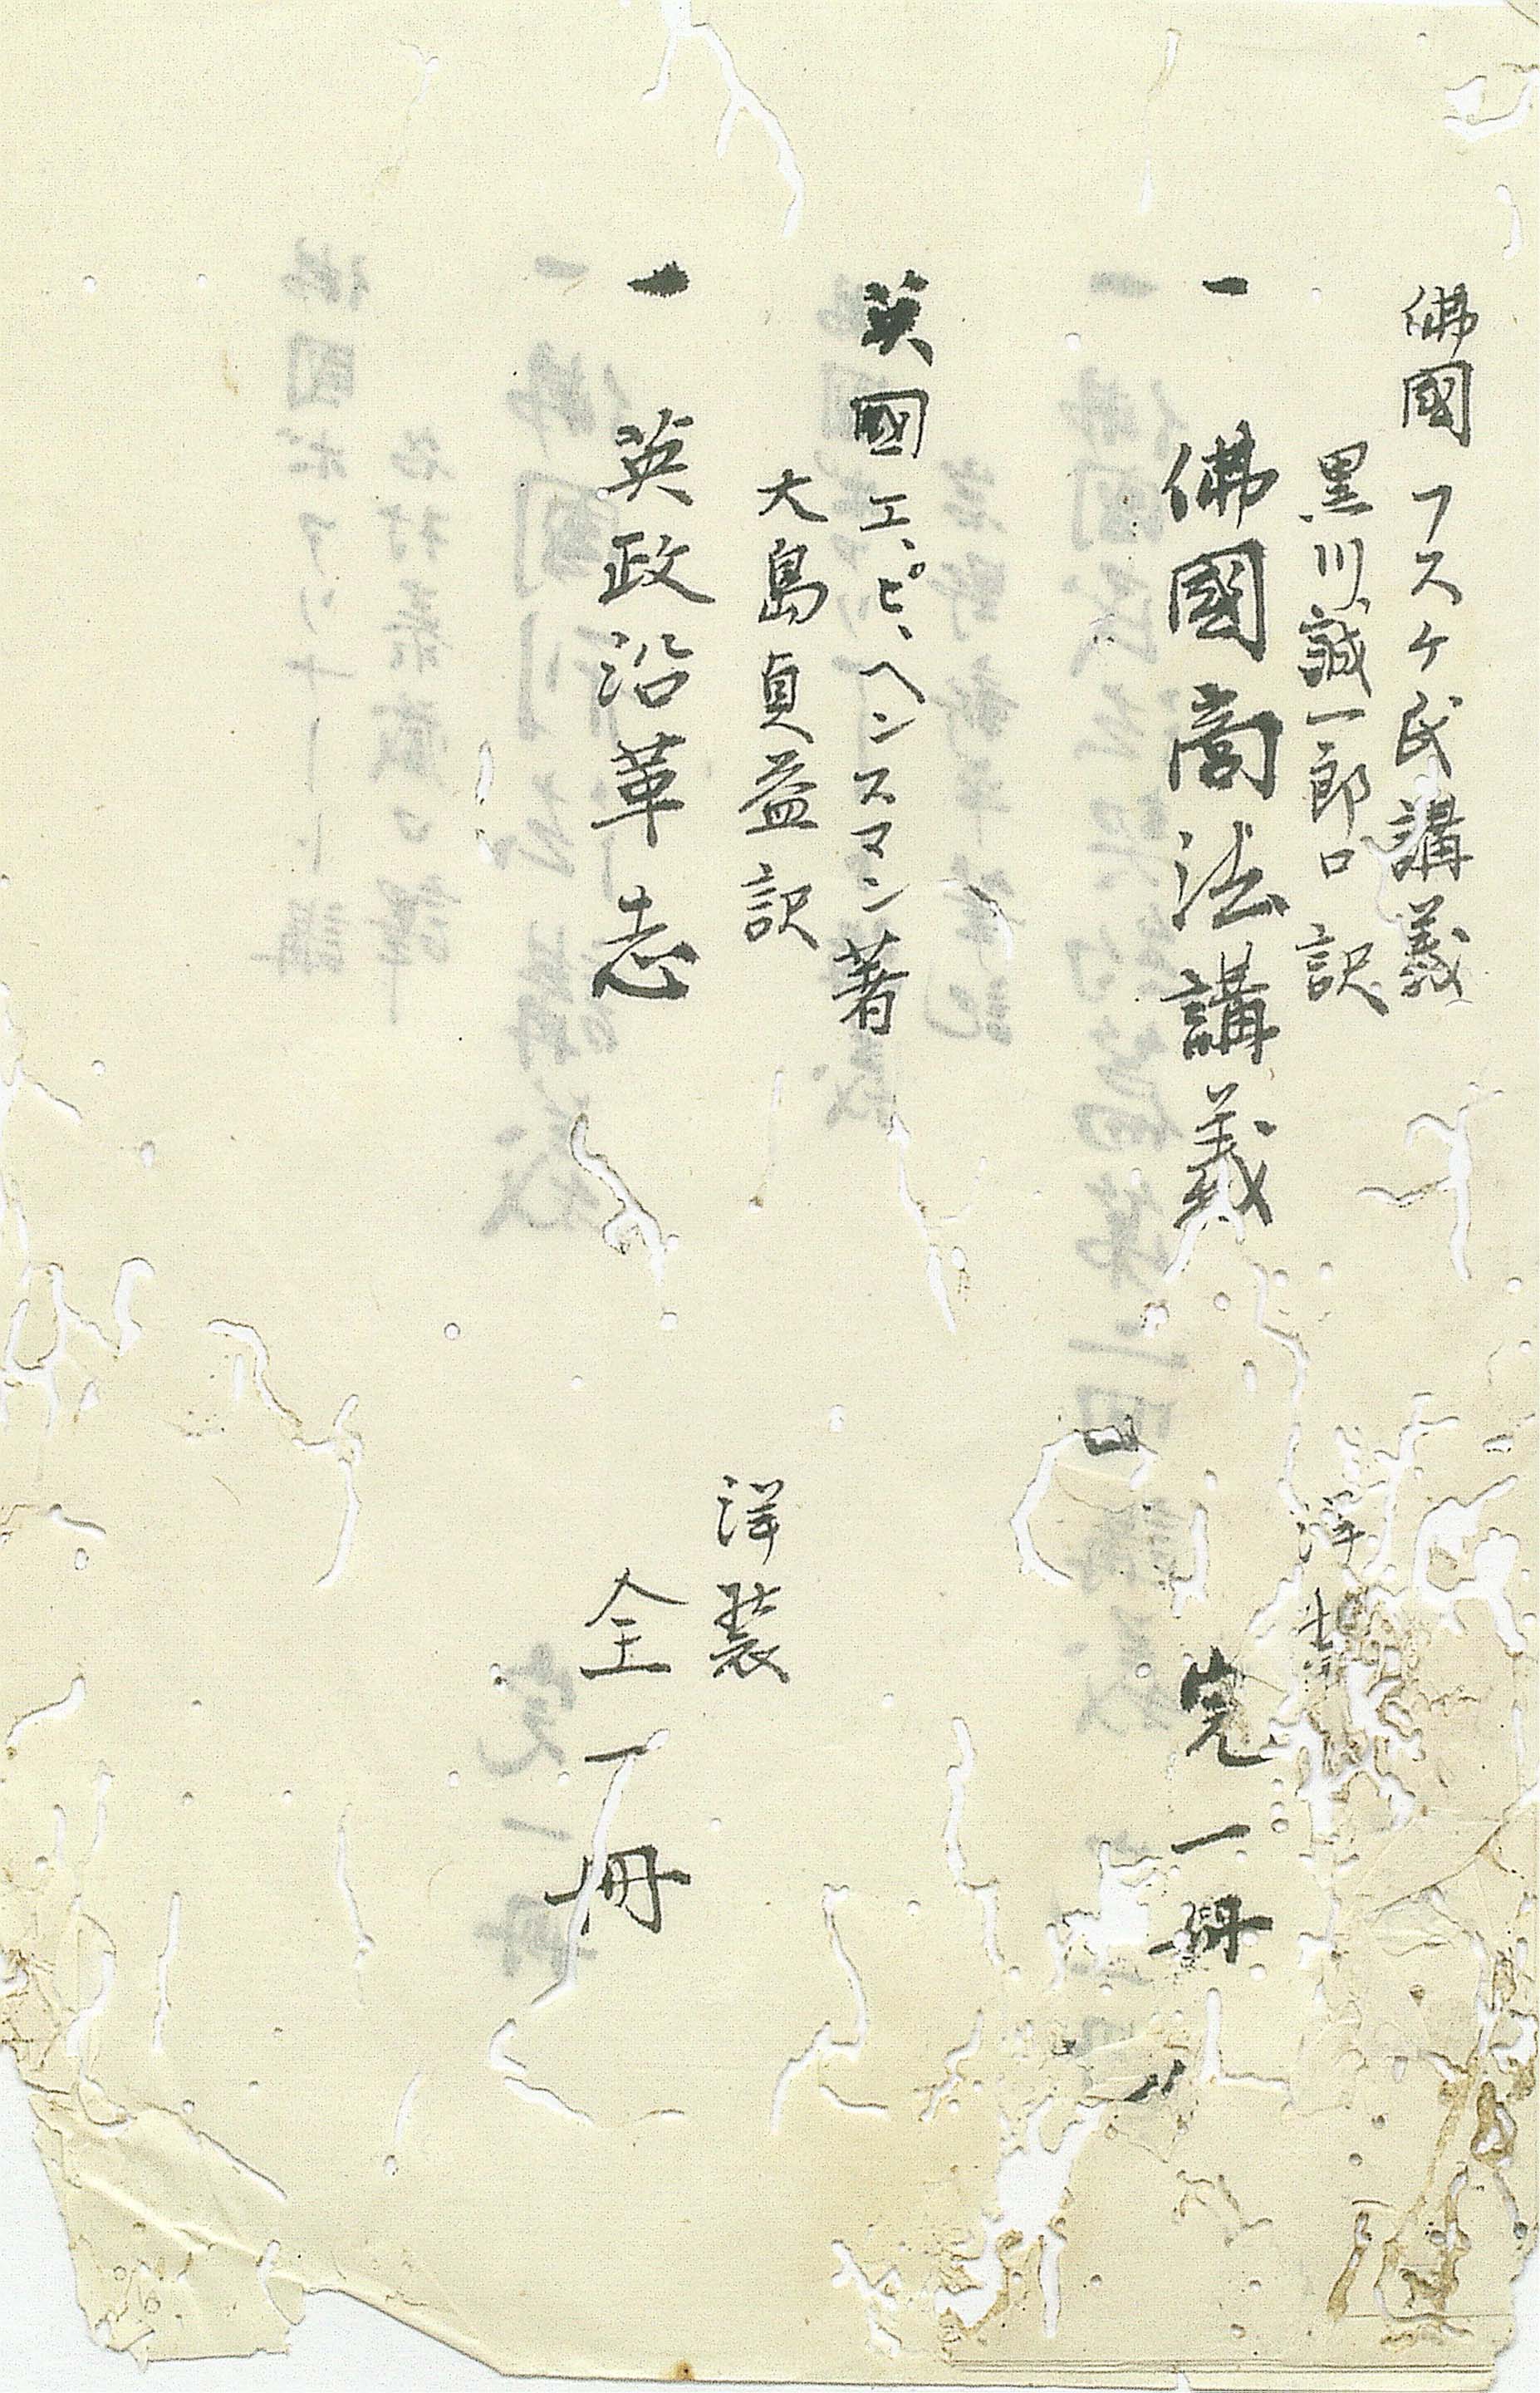 佛國フスケ氏講義
黒川誠一郎口訳
洋装
一 佛國商法講義 完一冊
英國エ、ピ、ヘンスマン著
大島貞益訳
洋装
一 英政沿革志 全一冊